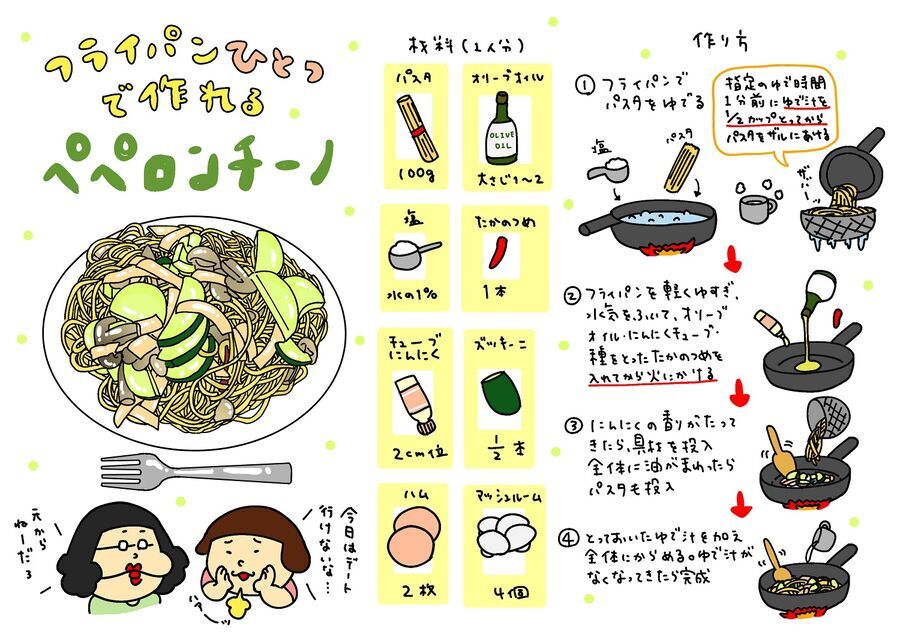 フライパンひとつ
で作れる
ペペロンチーノ
材料(1人分)
パスタ
100g
オリーブオイル
OLIVE
OIL
大さじ1〜2
塩
水の1%
たかのつめ
1本
チューブ
にんにく
2cm位
ズッキーニ
1/2本
ハム
2枚
マッシュルーム
4個
作り方
① フライパンで
パスタをゆでる
指定のゆで時間
1分前にゆで汁を
1/2カップとってから
パスタをザルにあける
塩
パスタ
ザバーッ
② フライパンを軽くゆすぎ、
水気をふいて、オリーブ
オイル・にんにくチューブ・
種をとったたかのつめを
入れてから火にかける
③ にんにくの香りがたって
きたら、具材を投入
全体に油がまわったら
パスタも投入
④ とっておいたゆで汁を加え
全体にからめる。ゆで汁が
なくなってきたら完成
今日はデート
行けないな…
ハァ〜
元から
ねーだろ